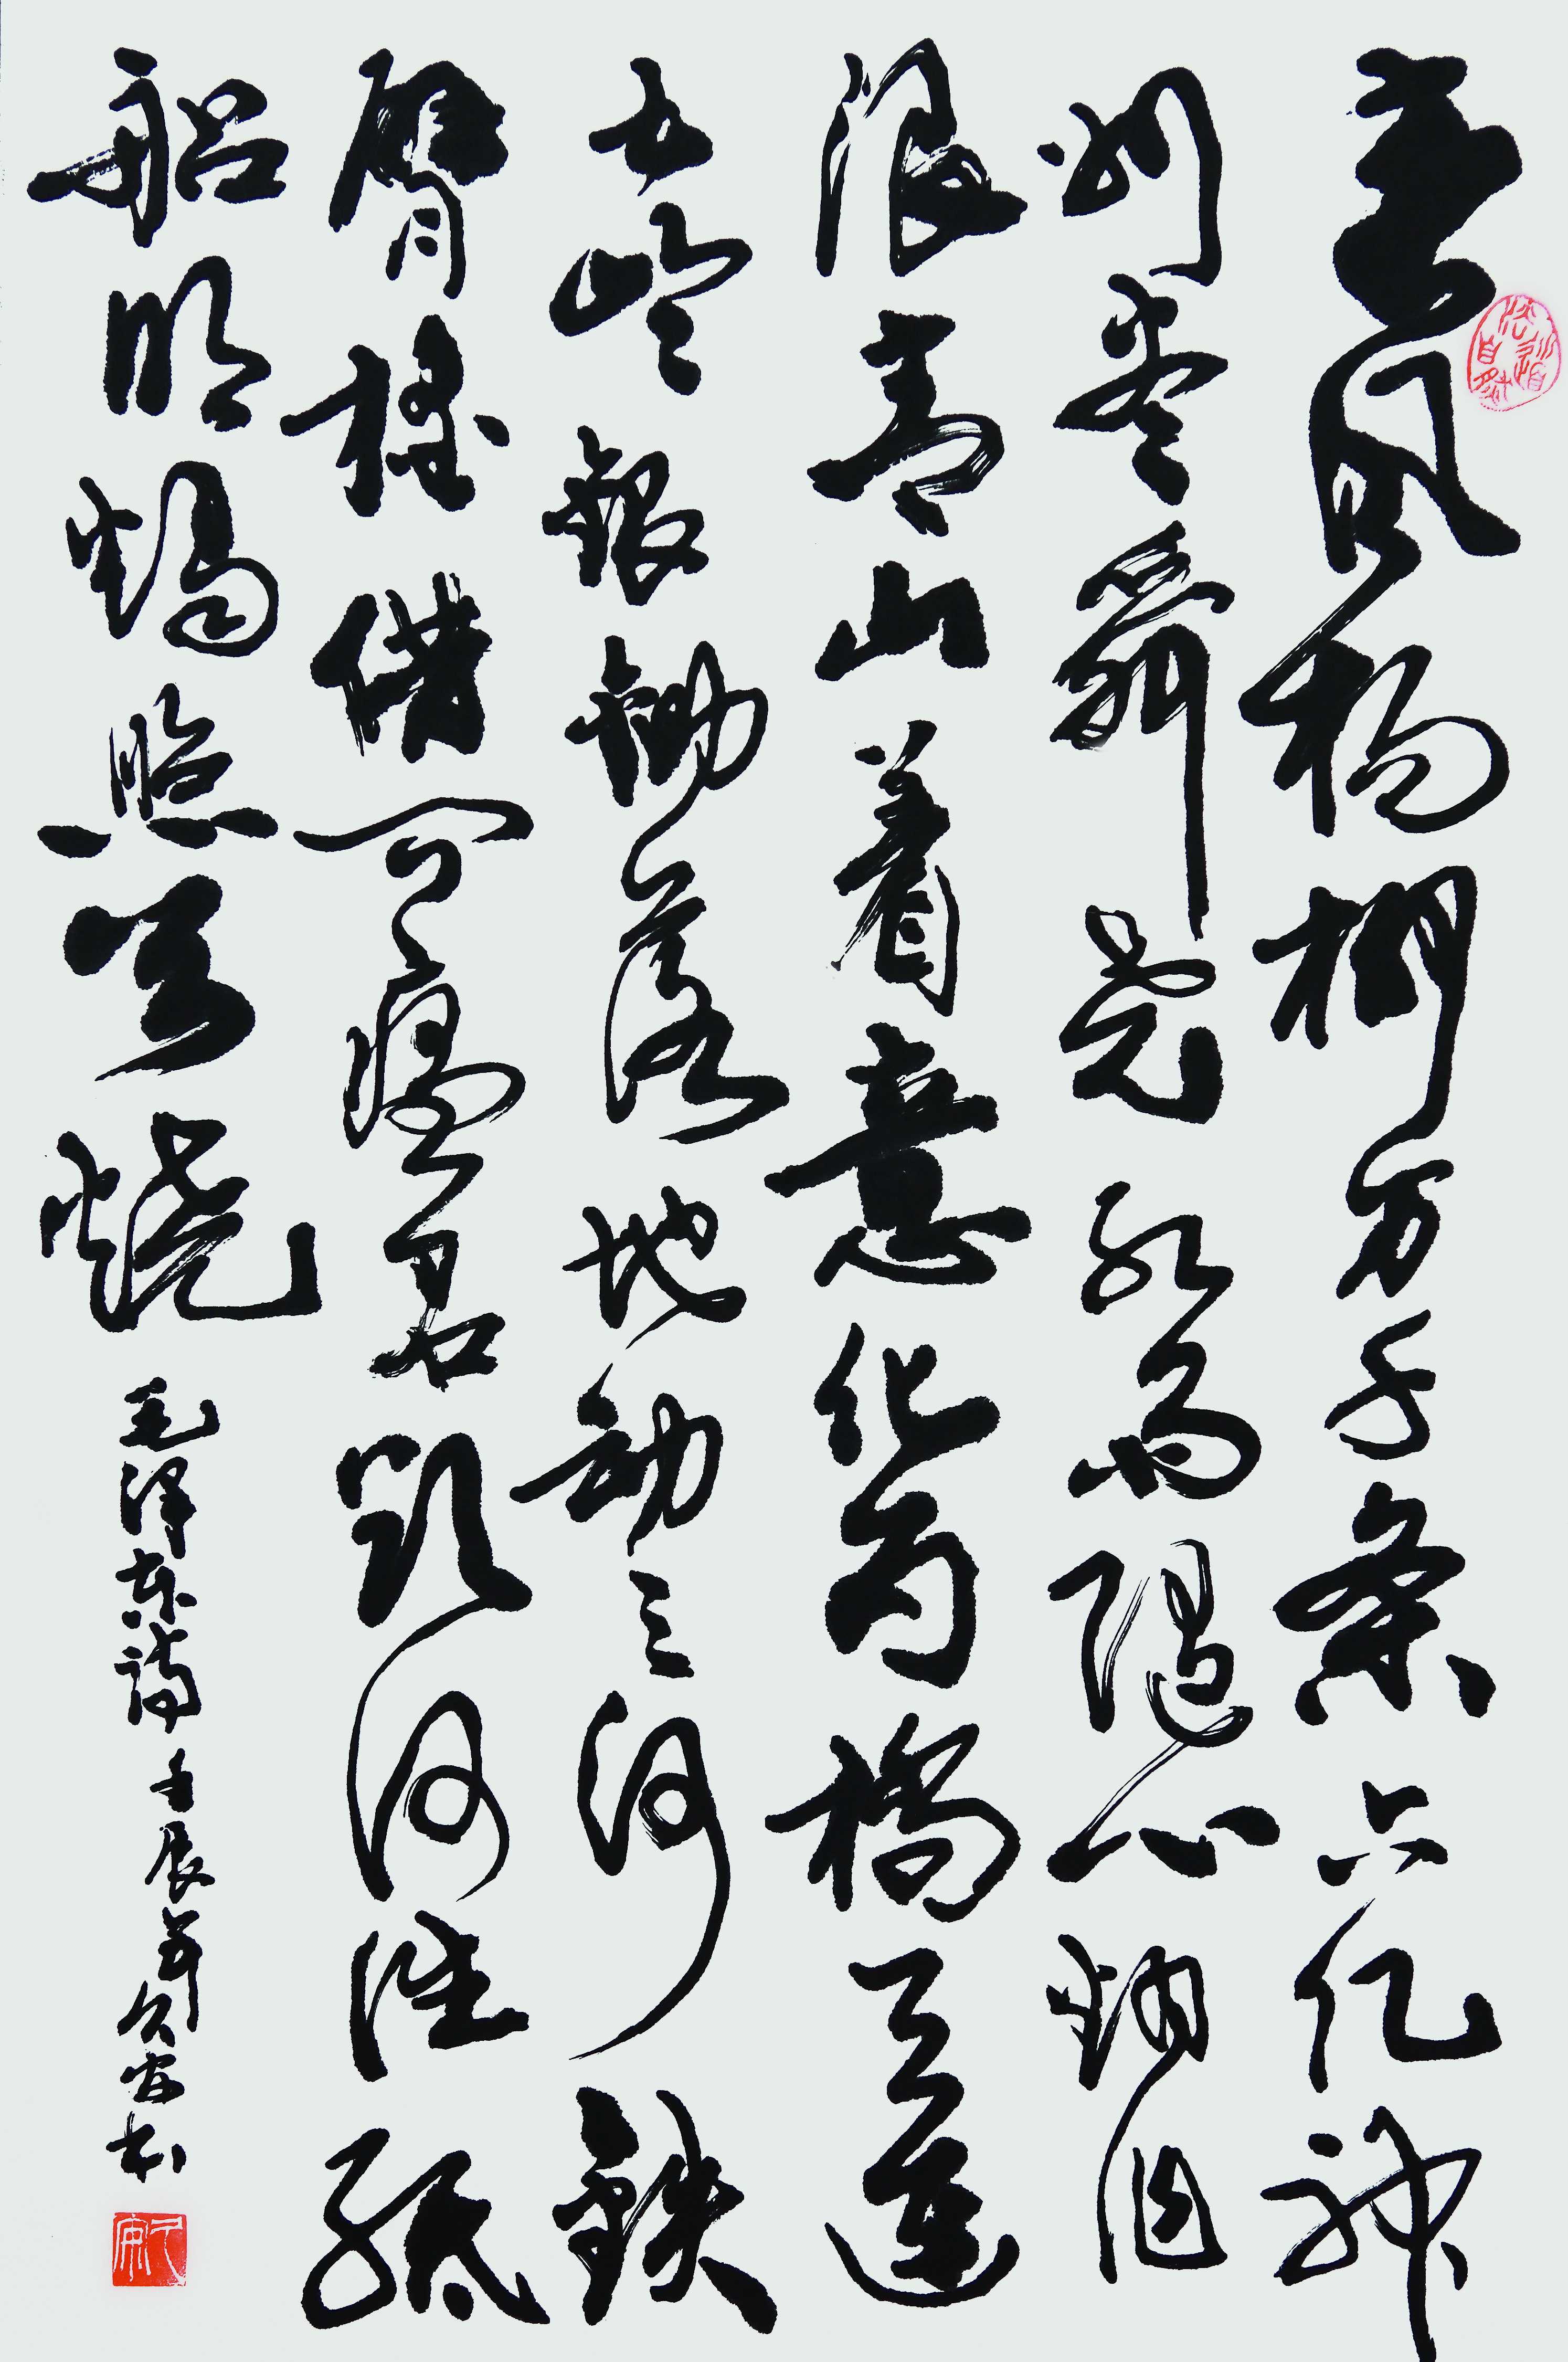 春风杨柳万千条六亿神
州尽舜尧红雨随心翻作
浪青山着意化为桥天连
五岭银锄落地动三河铁
臂摇借问瘟君欲何往纸
船明烛照天烧
毛泽东诗壬辰年久安书
道法自然
久安